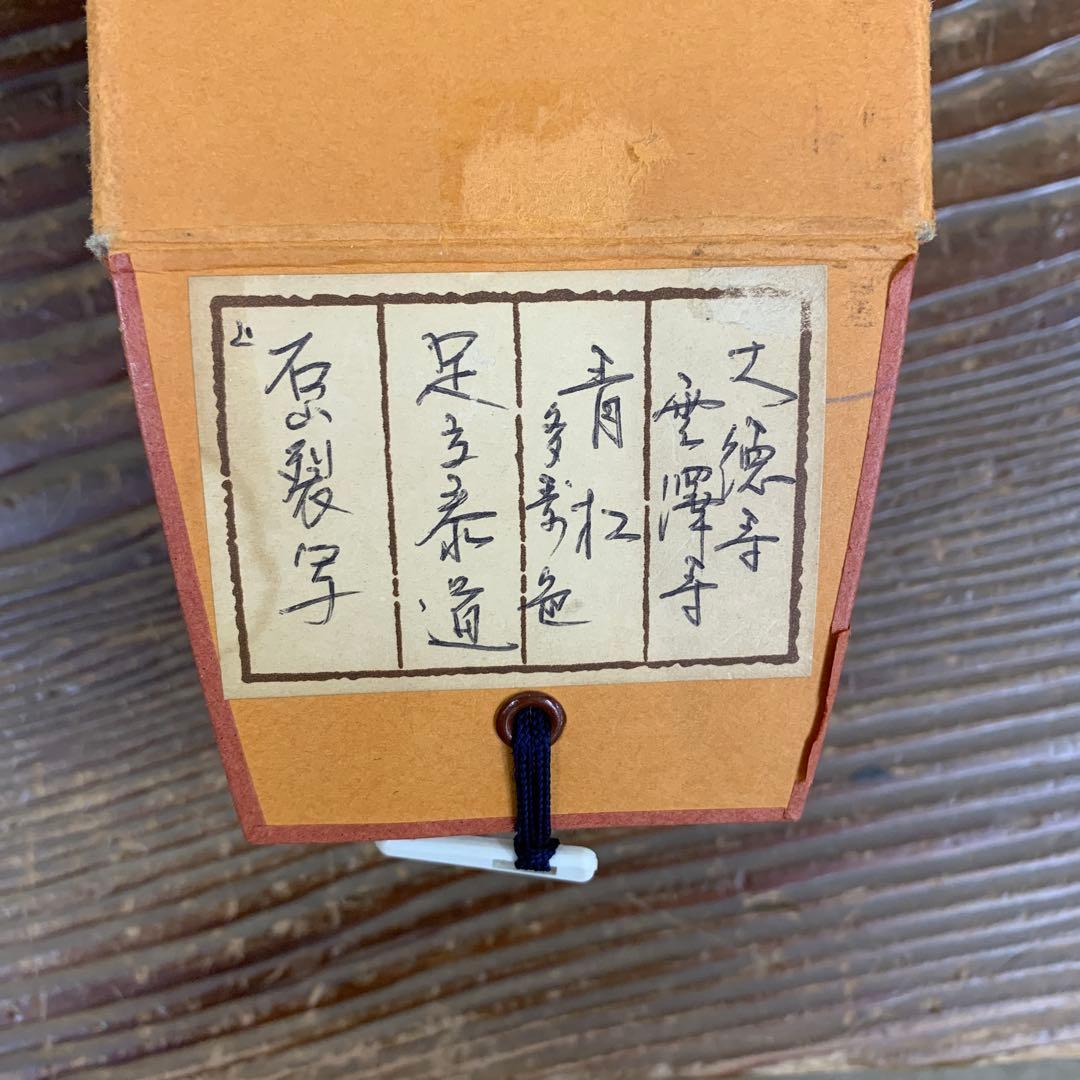 大徳寺
雲澤寺
青松
多萬色
足立泰道
石山裂写